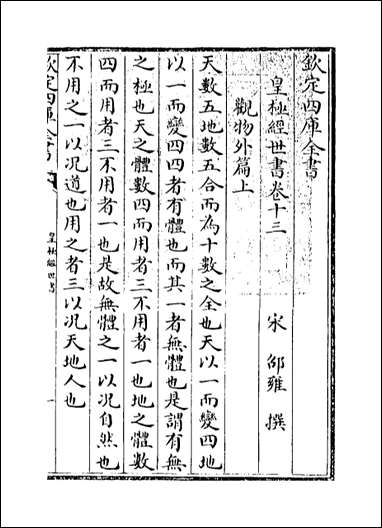 欽定四庫全書
皇極經世書卷十三
宋 邵雍 撰
觀物外篇上
天數五地數五合而為十數之全也天以一而變四地
以一而變四四者有體也而其一者無體也是謂有無
之極也天之體數四而用者三不用者一也地之體數
四而用者三不用者一也是故無體之一以況自然也
不用之一以況道也用之者三以況天地人也
欽定四庫全書
皇極經世書
一